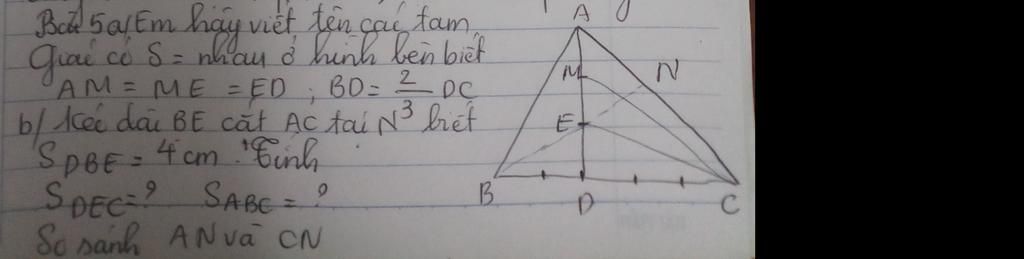 Bài 5a/Em hãy viết tên các tam
Giác có S = nhau ở hình bên biết
AM = ME = ED ; BD = 2/3 DC
b/ Kéo dài BE cắt AC tại N biết
S DBE = 4cm. Tính
S DEC = ? S ABC = ?
So sánh AN và CN
A
M
N
E
B
D
C